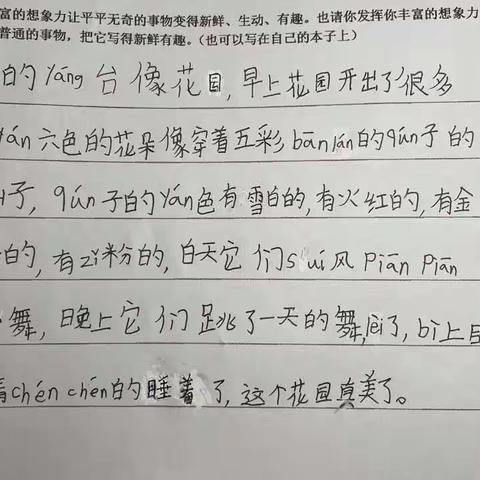 富的想象力让平平无奇的事物变得新鲜、生动、有趣。也请你发挥你丰富的想象力
普通的事物，把它写得新鲜有趣。（也可以写在自己的本子上）
的yáng台像花园,早上花园开出了很多
yán六色的花朵像穿着五彩bānlán的qún子的
子,qún子的yán色有雪白的,有火红的,有金
的,有zǐ粉的,白天它们suí风Piān Piān
舞,晚上它们跳了一天的舞,lèi了,bì上
chén chén的睡着了,这个花园真美了。